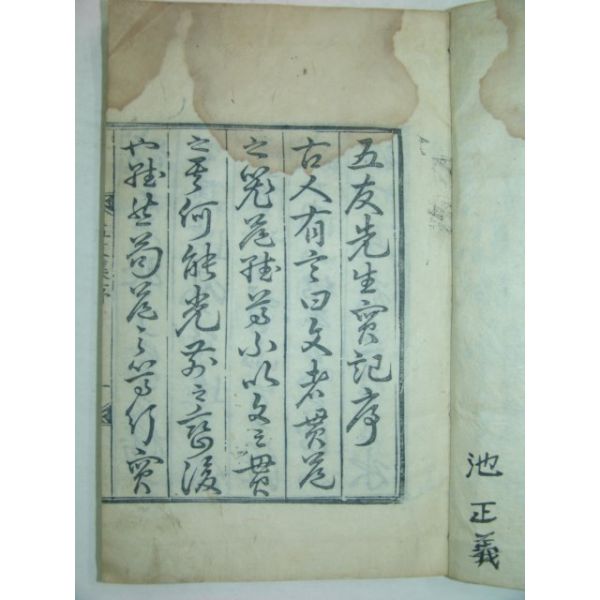 池正義
五友先生實記序
古人有言曰文者貫道
之器道雖尊不以文之貫
之其何能光前之啓後
也雖然苟道之篤行實